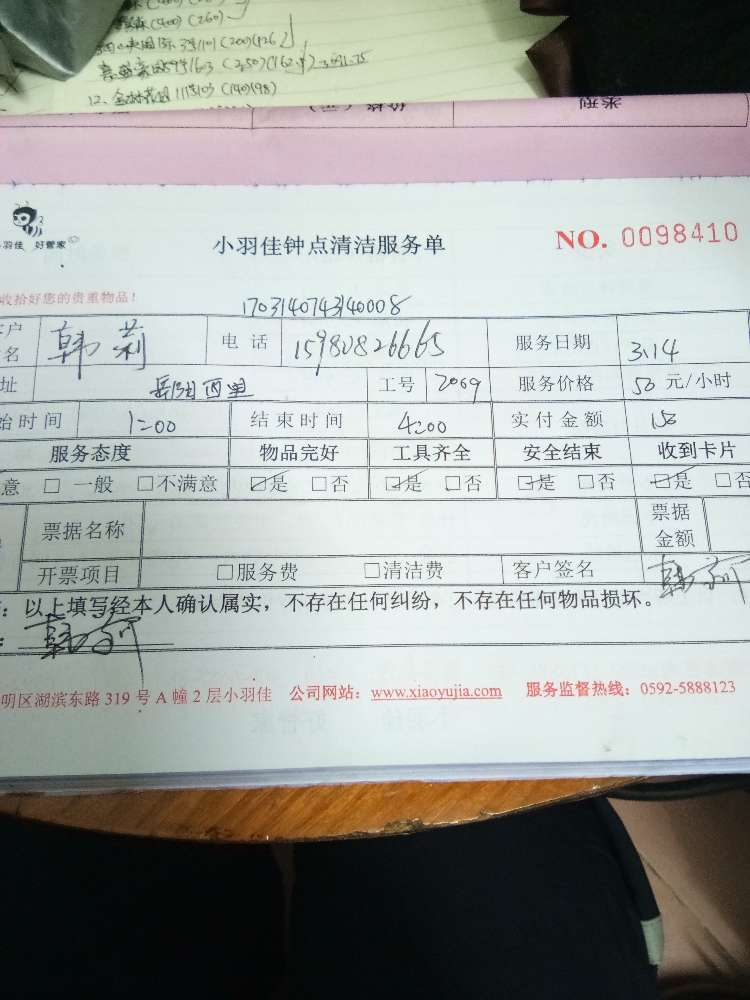 12. 金林花园111梯03 (140)(98)
小羽佳 好管家
小羽佳钟点清洁服务单 NO. 0098410
收拾好您的贵重物品!
1703140743140008
客户姓名 韩莉 电话 15980826665 服务日期 3.14
址 岳阳西里 工号 2069 服务价格 50 元/小时
始时间 1:00 结束时间 4:00 实付金额 150
服务态度 物品完好 工具齐全 安全结束 收到卡片
意 □ 一般 □不满意 ☑是 □否 ☑是 □否 ☑是 □否 ☑是 □否
票据名称 票据金额
开票项目 □服务费 □清洁费 客户签名
:以上填写经本人确认属实,不存在任何纠纷,不存在任何物品损坏。
明区湖滨东路 319 号 A 幢 2 层小羽佳 公司网站:www.xiaoyujia.com 服务监督热线:0592-5888123